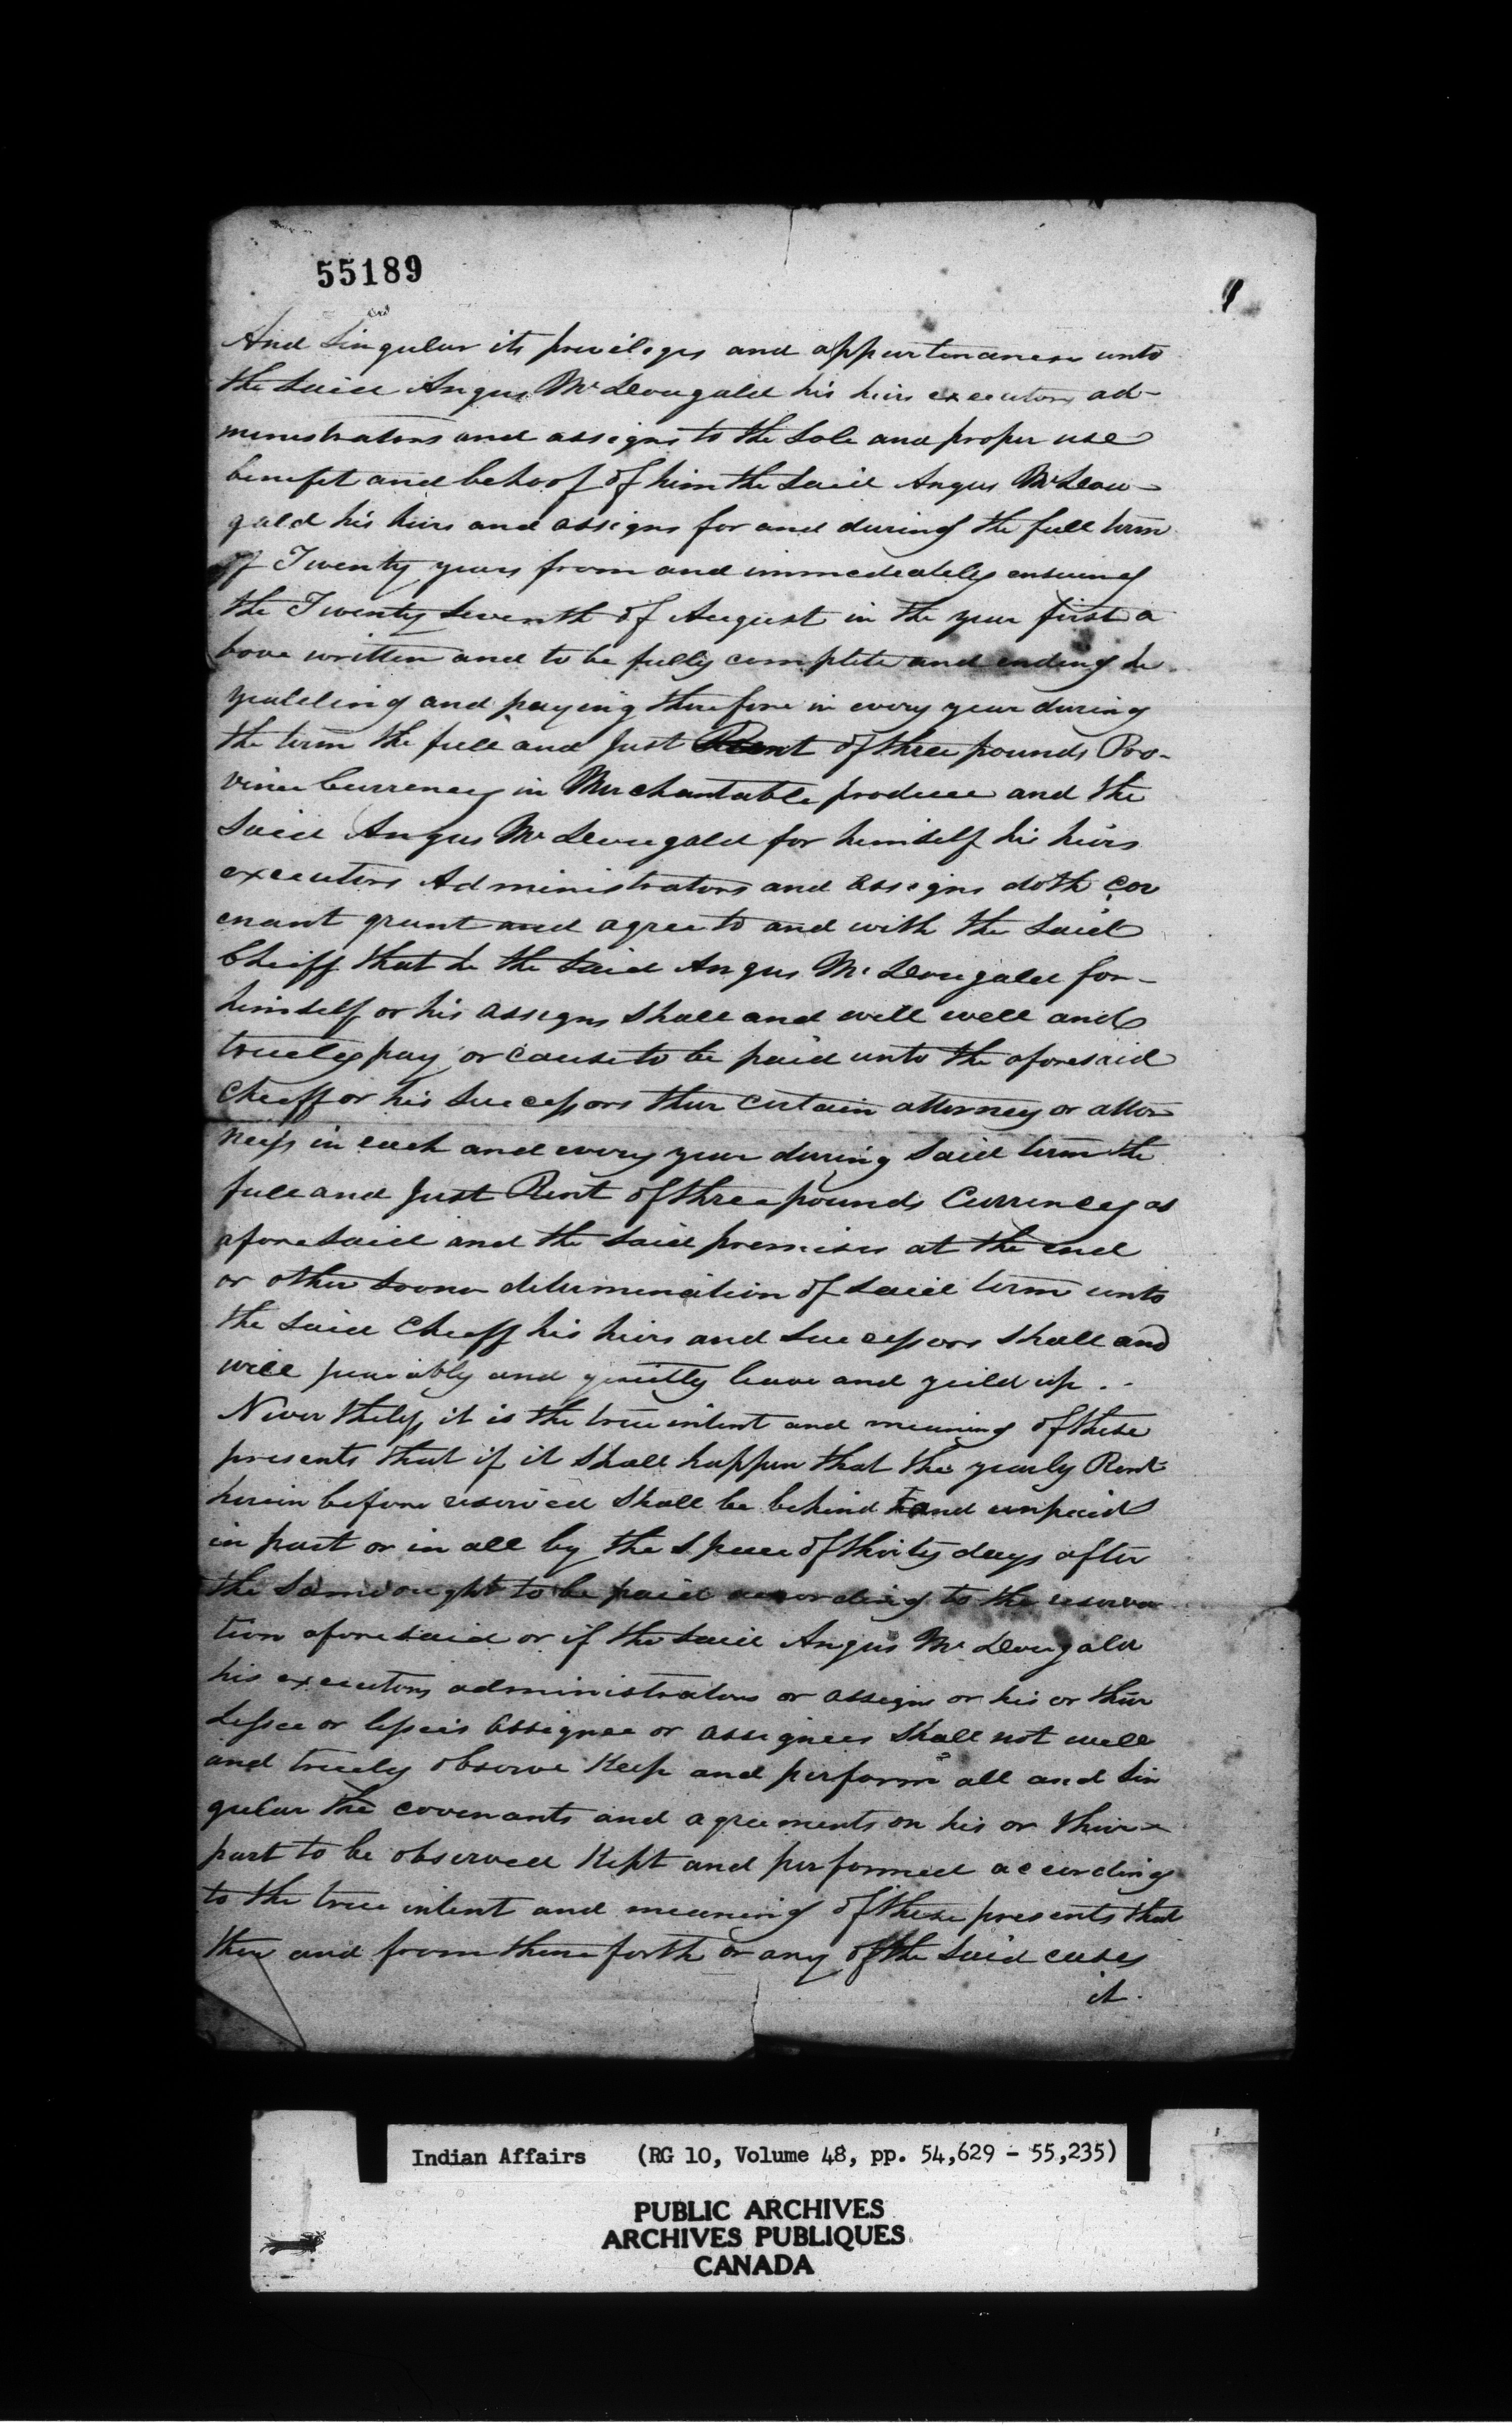 55189
And Singular its privileges and appurtenances unto
the Said Angus Mc Dougald his heirs executors ad-
ministrators and assigns to the Sole and proper use
benefit and behoof of him the Said Angus Mc Dou-
gald his heirs and assigns for and during the full term
of Twenty years from and immediately ensueing
the Twenty Seventh of August in the year first a
bove written and to be fully complete and ending he
yealding and paying therefore in every year during
the term the full and Just Rent of three pounds Pro-
vince Currency in Merchantable produce and the
Said Angus Mc Dougald for himself his heirs
executors Administrators and assigns doth cov
enant grant and agree to and with the Said
Cheiff that he the Said Angus Mc Dougald for-
himself or his assigns Shall and will well and
truely pay or cause to be paid unto the aforesaid
Cheiff or his Successors their certain attorney or attor
neys in each and every year during Said term the
full and Just Rent of three pounds Currency as
aforesaid and the Said premises at the end
or other Sooner determination of Said term unto
the Said Cheiff his heirs and Successors Shall and
will peaciably and quietly leave and yeild up . -
Never theless it is the true intent and meaning of these
presents that if it Shall happen that the yearly Rent
herein before reserved Shall be behind and unpaid
in part or in all by the Space of thirty days after
the Same ought to be paid according to the reserva
tion aforesaid or if the Said Angus Mc Dougald
his executors administrators or assigns or his or their
Lessee or lessees assignee or assignees Shall not well
and truely observe Keep and perform all and Sin
gular the covenants and agreements on his or their
part to be observed Kept and performed according
to the true intent and meaning of these presents that
then and from thence forth or any of the Said cases
it
Indian Affairs (RG 10, Volume 48, pp. 54,629 - 55,235)
PUBLIC ARCHIVES
ARCHIVES PUBLIQUES
CANADA